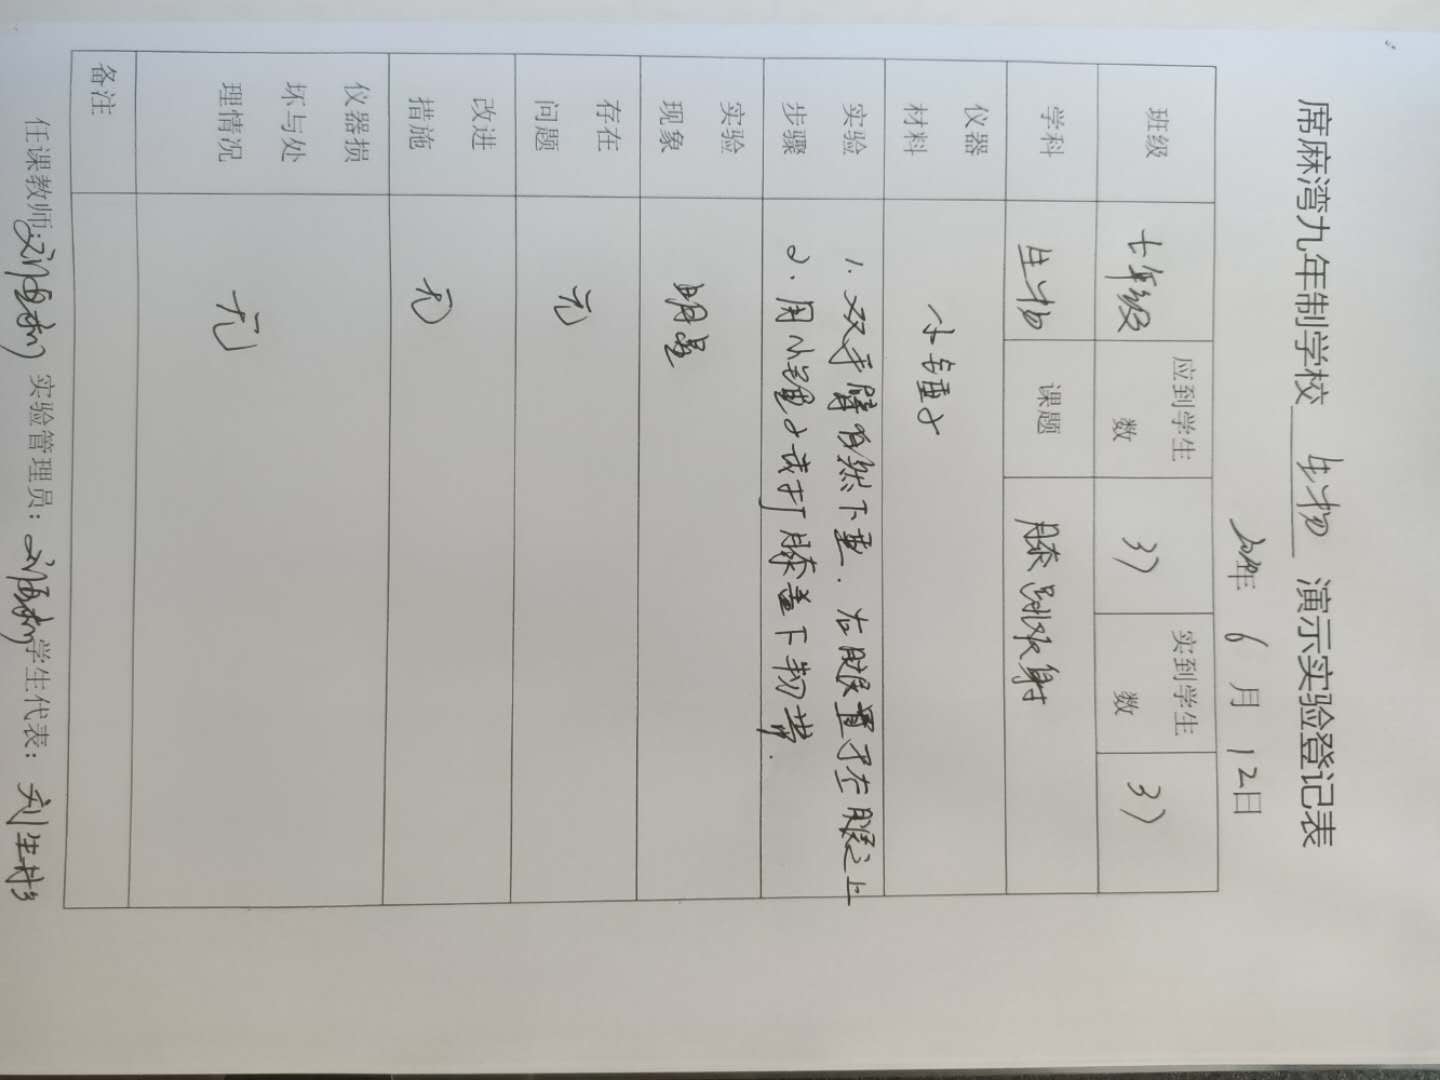 席麻湾九年制学校 生物 演示实验登记表
年 6 月 12日
班级 七年级 应到学生数 31 实到学生数 31
学科 生物 课题 膝跳反射
仪器材料 小锤子
实验步骤 1.双手臂自然下垂.右腿置于左腿之上
2.用小锤子 打膝盖下韧带.
实验现象 明显
存在问题 无
改进措施 无
仪器损坏与处理情况 无
备注
任课教师: 实验管理员: 学生代表: 刘